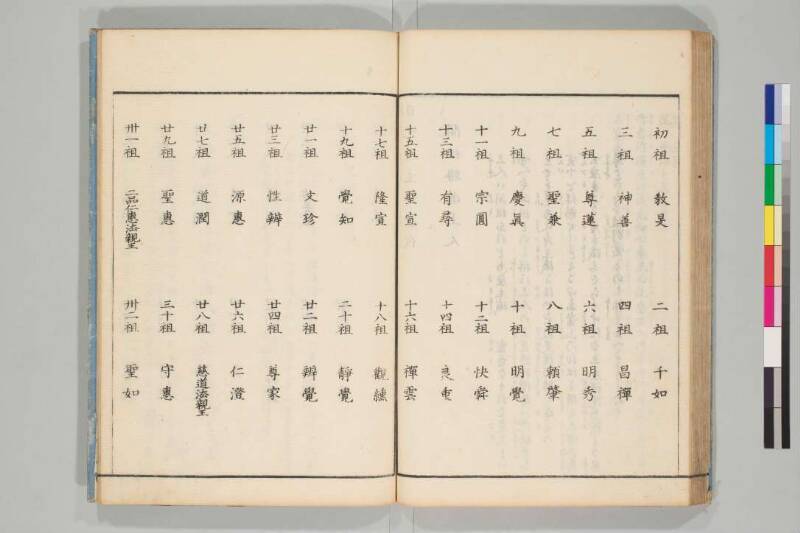 初祖 敎旻 二祖 千如
三祖 神善 四祖 昌禪
五祖 尊蓮 六祖 明秀
七祖 聖兼 八祖 賴肇
九祖 慶眞 十祖 明覺
十一祖 宗圓 十二祖 快舜
十三祖 有尋 十四祖 良重
十五祖 聖宣 十六祖 禪雲
十七祖 隆宣 十八祖 觀纏
十九祖 覺知 二十祖 靜覺
廿一祖 文珍 廿二祖 辨覺
廿三祖 性辨 廿四祖 尊家
廿五祖 源惠 廿六祖 仁澄
廿七祖 道潤 廿八祖 慈道法親王
廿九祖 聖惠 三十祖 守惠
卅一祖 二品仁惠法親王 卅二祖 聖如